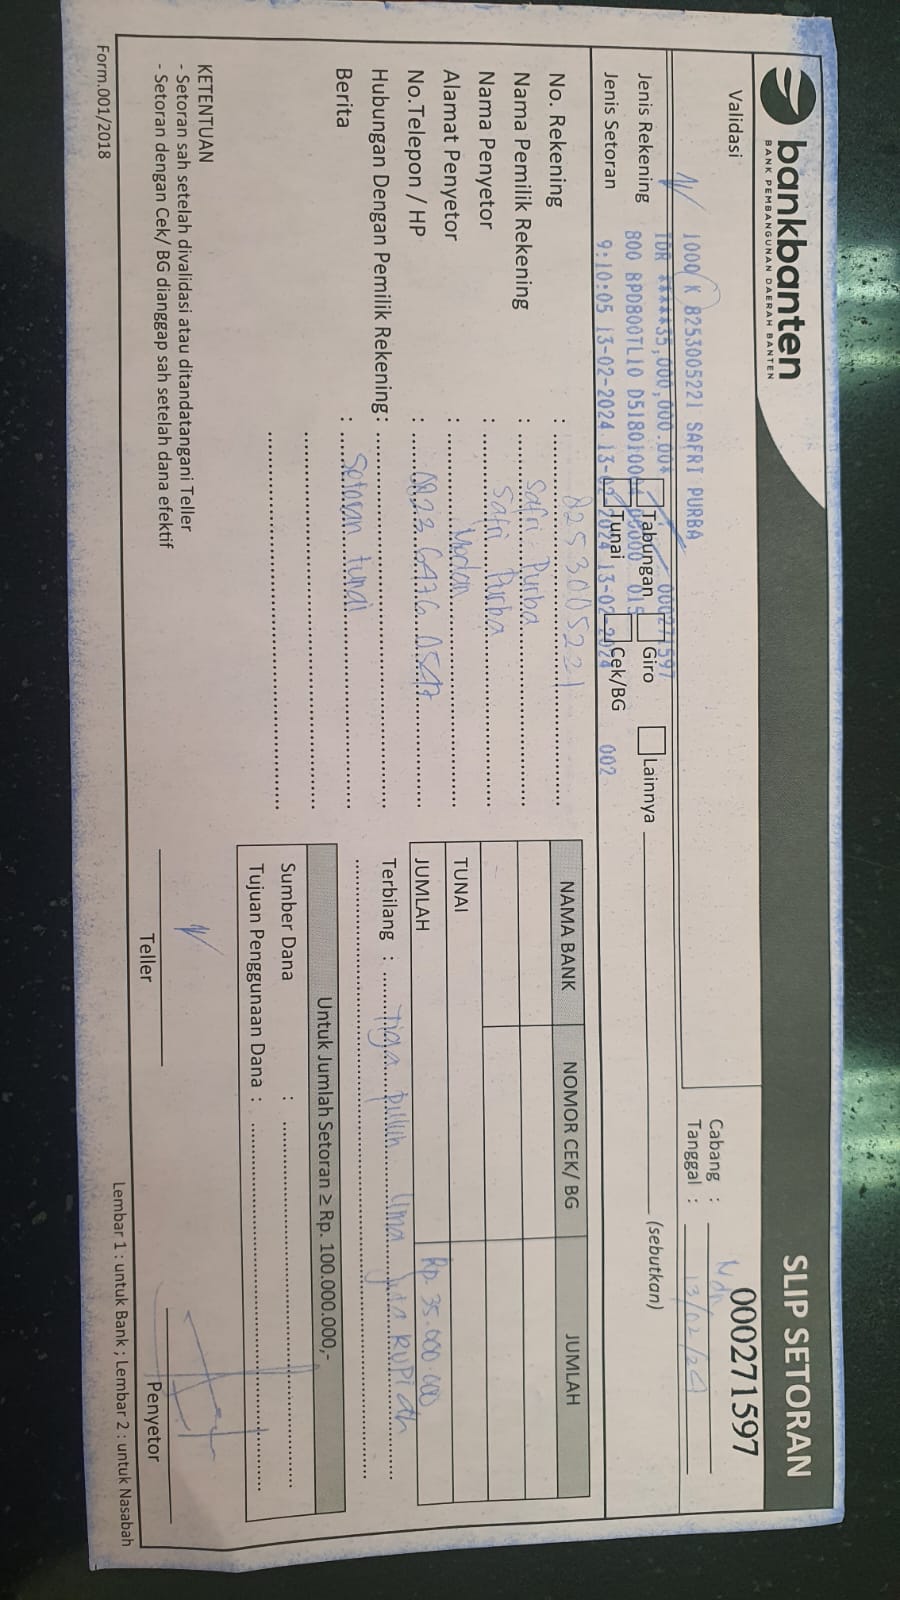 bankbanten
BANK PEMBANGUNAN DAERAH BANTEN
SLIP SETORAN
000271597
Validasi
1000 K 8253005221 SAFRI PURBA
IDR *****35,000,000.00* 000271597
800 BPD800TL10 D5180100 00000 015
9:10:05 13-02-2024 13-02-2024 13-02-2024 002
Cabang :
Tanggal : 13/02/24
Jenis Rekening Tabungan Giro Lainnya (sebutkan)
Jenis Setoran Tunai Cek/BG
No. Rekening : 8253005221
Nama Pemilik Rekening : Safri Purba
Nama Penyetor : Safri Purba
Alamat Penyetor :
No.Telepon / HP :
Hubungan Dengan Pemilik Rekening :
Berita : Setoran tunai
NAMA BANK NOMOR CEK/ BG JUMLAH
TUNAI
JUMLAH Rp. 35.000.000
Terbilang : Tiga puluh lima juta RUPIAH
Untuk Jumlah Setoran ≥ Rp. 100.000.000,-
Sumber Dana :
Tujuan Penggunaan Dana :
KETENTUAN
- Setoran sah setelah divalidasi atau ditandatangani Teller
- Setoran dengan Cek/ BG dianggap sah setelah dana efektif
Teller
Penyetor
Form.001/2018
Lembar 1 : untuk Bank ; Lembar 2 : untuk Nasabah